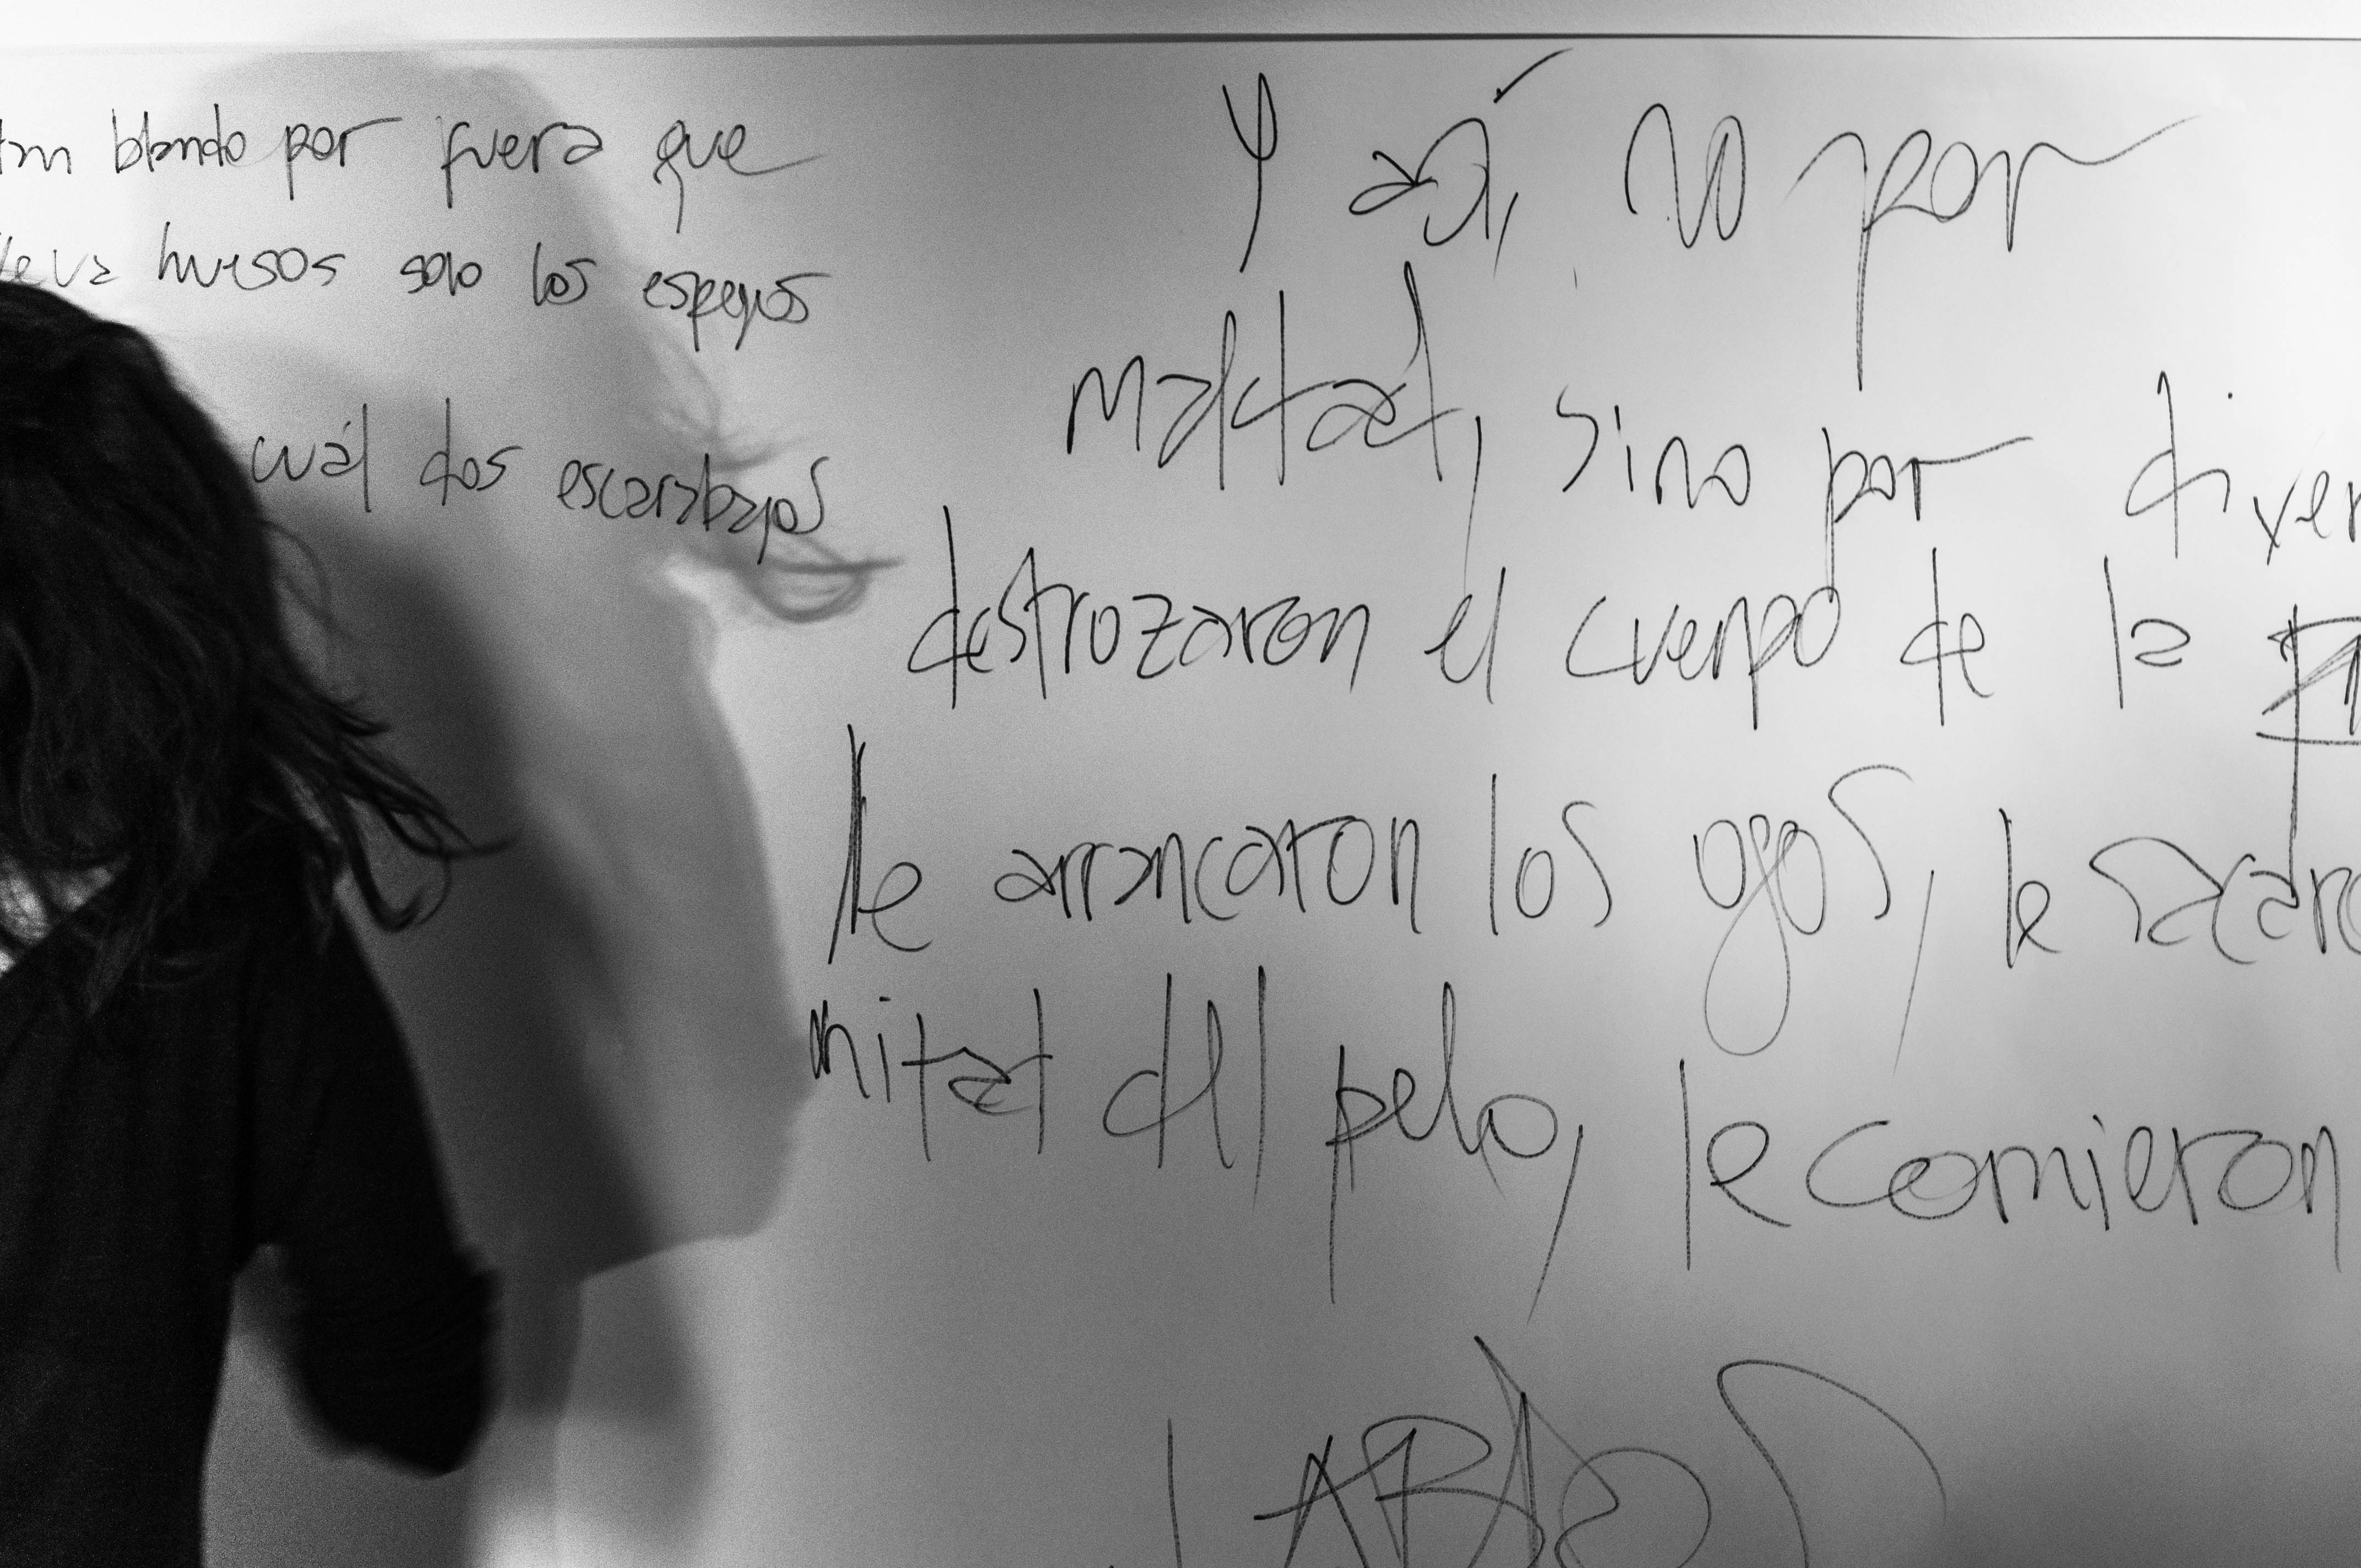 tan blando por fuera que
lleva huesos solo los espejos
cuál dos escarabajos
Y así, no por
maldad, sino por diver
destrozaron el cuerpo de la
le arrancaron los ojos, le sacaro
mitad del pelo, le comieron